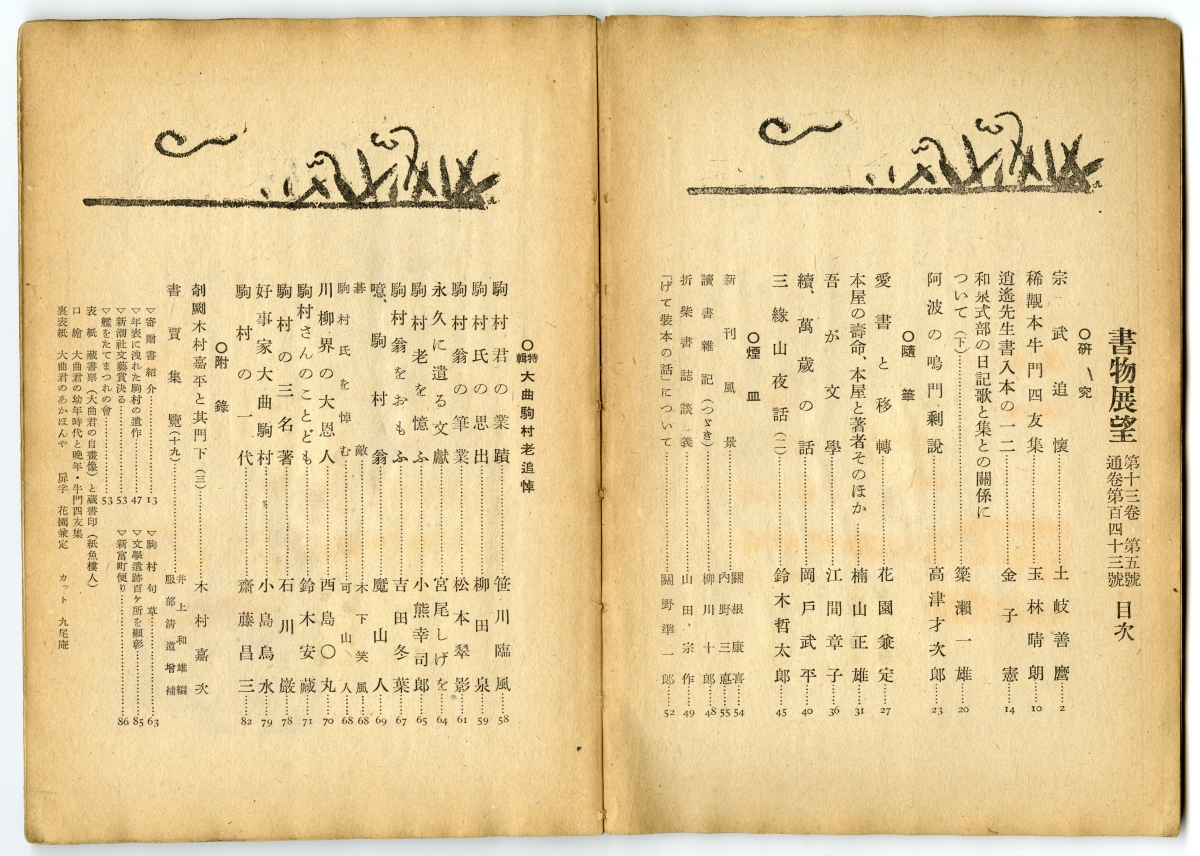 書物展望 第十三卷 第五號 通卷第百四十三號 目次
○硏究
宗武追懷……土岐善麿…2
稀觀本牛門四友集……玉林晴朗…10
逍遙先生書入本の一二……金子憲…14
和泉式部の日記歌と集との關係に
ついて(下)……簗瀨一雄…20
阿波の鳴門剩說……高津才次郎…23
○隨筆
愛書と移轉……花園兼定…27
本屋の壽命、本屋と著者そのほか……楠山正雄…31
吾が文學……江間章子…36
續、萬歲の話……岡戶武平…40
三緣山夜話(二)……鈴木哲太郎…45
○煙皿
新刊風景……關根康喜…54
內野三悳…55
讀書雜記(つゞき)……柳川十郎…48
折柴書誌談義……山田、宗作…49
「げて裝本の話」について……關野準一郎…52
○特輯 大曲駒村老追悼
駒村君の業蹟……笹川臨風…58
駒村氏の思出……柳田泉…59
駒村翁の筆業……松本翠影…61
永久に遺る文獻……宮尾しげを…64
駒村老を憶ふ……小熊幸司郎…65
駒村翁をおもふ……吉田冬葉…67
噫、駒村翁……魔山人…69
碁敵……木下笑風…68
駒村氏を悼む……可山人…68
川柳界の大恩人……西島〇丸…70
駒村さんのことども……鈴木安藏…71
駒村の三名著……石川巖…78
好事家大曲駒村……小島烏水…79
駒村の一代……齋藤昌三…82
○附錄
剞劂木村嘉平と其門下(三)……木村嘉次
書賈集覽(十九)……井上和雄編
服部淸道增補
▽寄贈書紹介……13
▽年表に洩れた駒村の遺作……47
▽新潮社文藝賞決る……53
▽艦をたてまつれの會……53
▽駒村句草……63
▽文學遺跡百ケ所を顯彰……85
▽新富町便り……86
表紙 藏書票(大曲君の自畫像)と藏書印(紙魚樓人)
口繪 大曲君の幼年時代と晚年・牛門四友集
裏表紙 大曲君のあかほんや 扉字 花園兼定 カット 九尾庵